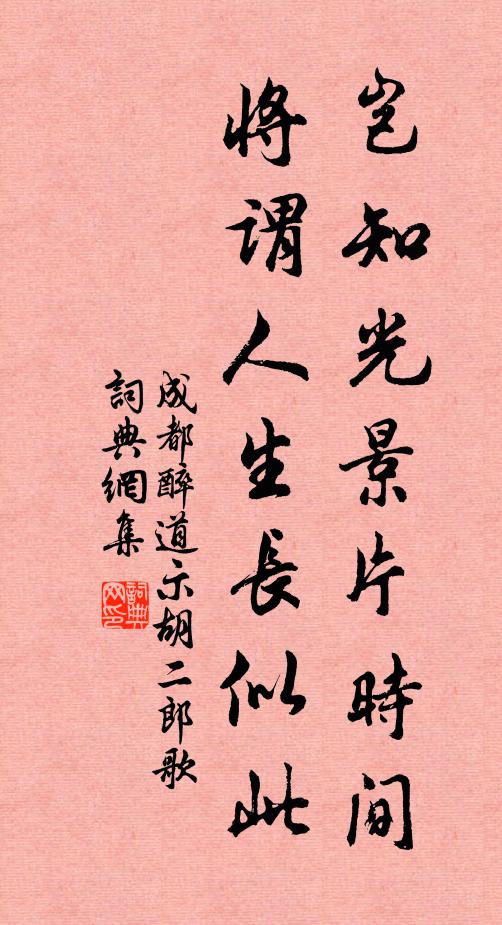 豈知光景片時間
將謂人生長似此
成都醉道示胡二郎歌
詞典網集
詞典
网印